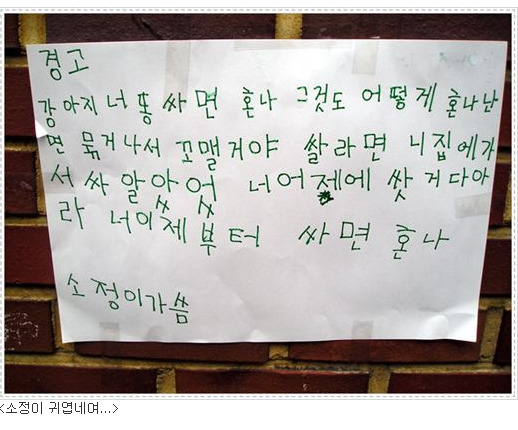 경고
강아지너똥 싸 면 혼나 그것도 어떻게 혼나냔
면 묶 거나서 꼬맬거야 쌀라면 니집에가
서 싸알았어 너어제에 쌋 거 다아
라 너이제 부터 싸면 혼나
소정이가씀
<소정이 귀엽네여...>